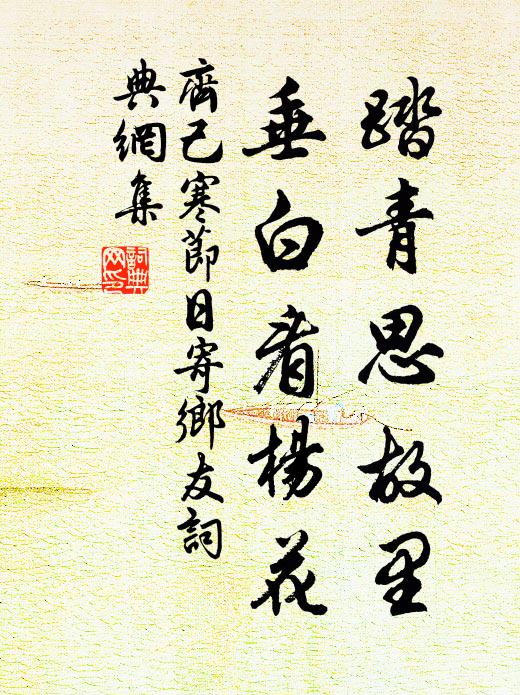 踏青思故里
垂白看楊花
齊己寒節日寄鄉友詞
典網集
詞典網印